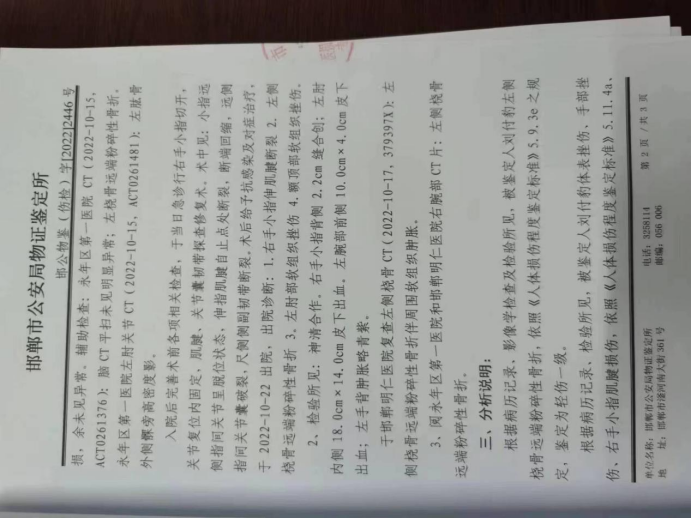 邯郸市公安局物证鉴定所
邯公物鉴（伤检）字[2022]2446号
损，余未见异常。辅助检查：永年区第一医院 CT（2022-10-15，
ACT0261376）：脑 CT 平扫未见明显异常；左桡骨远端粉碎性骨折。
永年区第一医院左肘关节 CT（2022-10-15，ACT0261481）：左肱骨
外侧髁旁高密度影。
入院后完善术前各项相关检查，于当日急诊行右手小指切开，
关节复位内固定，肌腱、关节囊韧带探查修复术。术中见：小指远
侧指间关节呈脱位状态，伸指肌腱自止点处断裂，断端回缩，远侧
指间关节囊破裂，尺侧侧副韧带断裂。术后给予抗感染及对症治疗，
于 2022-10-22 出院，出院诊断：1.右手小指伸肌腱断裂 2、左侧
桡骨远端粉碎性骨折 3、左肘部软组织挫伤 4.额顶部软组织挫伤。
2、检验所见：神清合作。右手小指背侧 2.2cm 缝合创；左肘
内侧 18.0cm×14.0cm 皮下出血。左腕部前侧 10.0cm×4.0cm 皮下
出血；左手背肿胀略青紫。
于邯郸明仁医院复查左侧桡骨 CT（2022-10-17，379397X）：左
侧桡骨远端粉碎性骨折伴周围软组织肿胀。
3、阅永年区第一医院和邯郸明仁医院右腕部 CT 片：左侧桡骨
远端粉碎性骨折。
三、分析说明：
根据病历记录、影像学检查及检验所见，被鉴定人刘付豹左侧
桡骨远端粉碎性骨折，依照《人体损伤程度鉴定标准》5.9.3e 之规
定，鉴定为轻伤一级。
根据病历记录、检验所见，被鉴定人刘付豹体表挫伤、手部挫
伤、右手小指肌腱损伤，依照《人体损伤程度鉴定标准》5.11.4a、
单位名称：邯郸市公安局物证鉴定所 电话：3258114
地 址：邯郸市滏河南大街361号 邮编：056 006 第 2 页 / 共 3 页